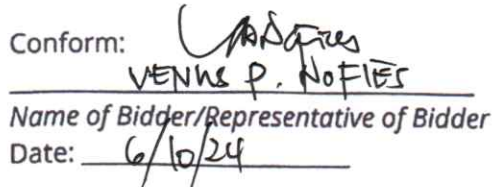 Conform:
VENUS P. NOFIES
Name of Bidder/Representative of Bidder
Date: 6/10/24